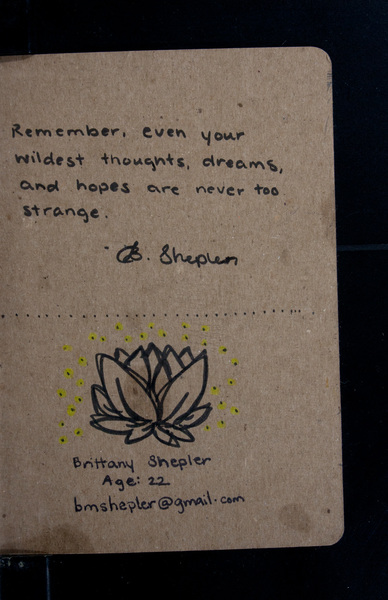 Remember, even your
wildest thoughts, dreams,
and hopes are never too
strange.
B. Shepler
Brittany Shepler
Age: 22
bmshepler@gmail.com